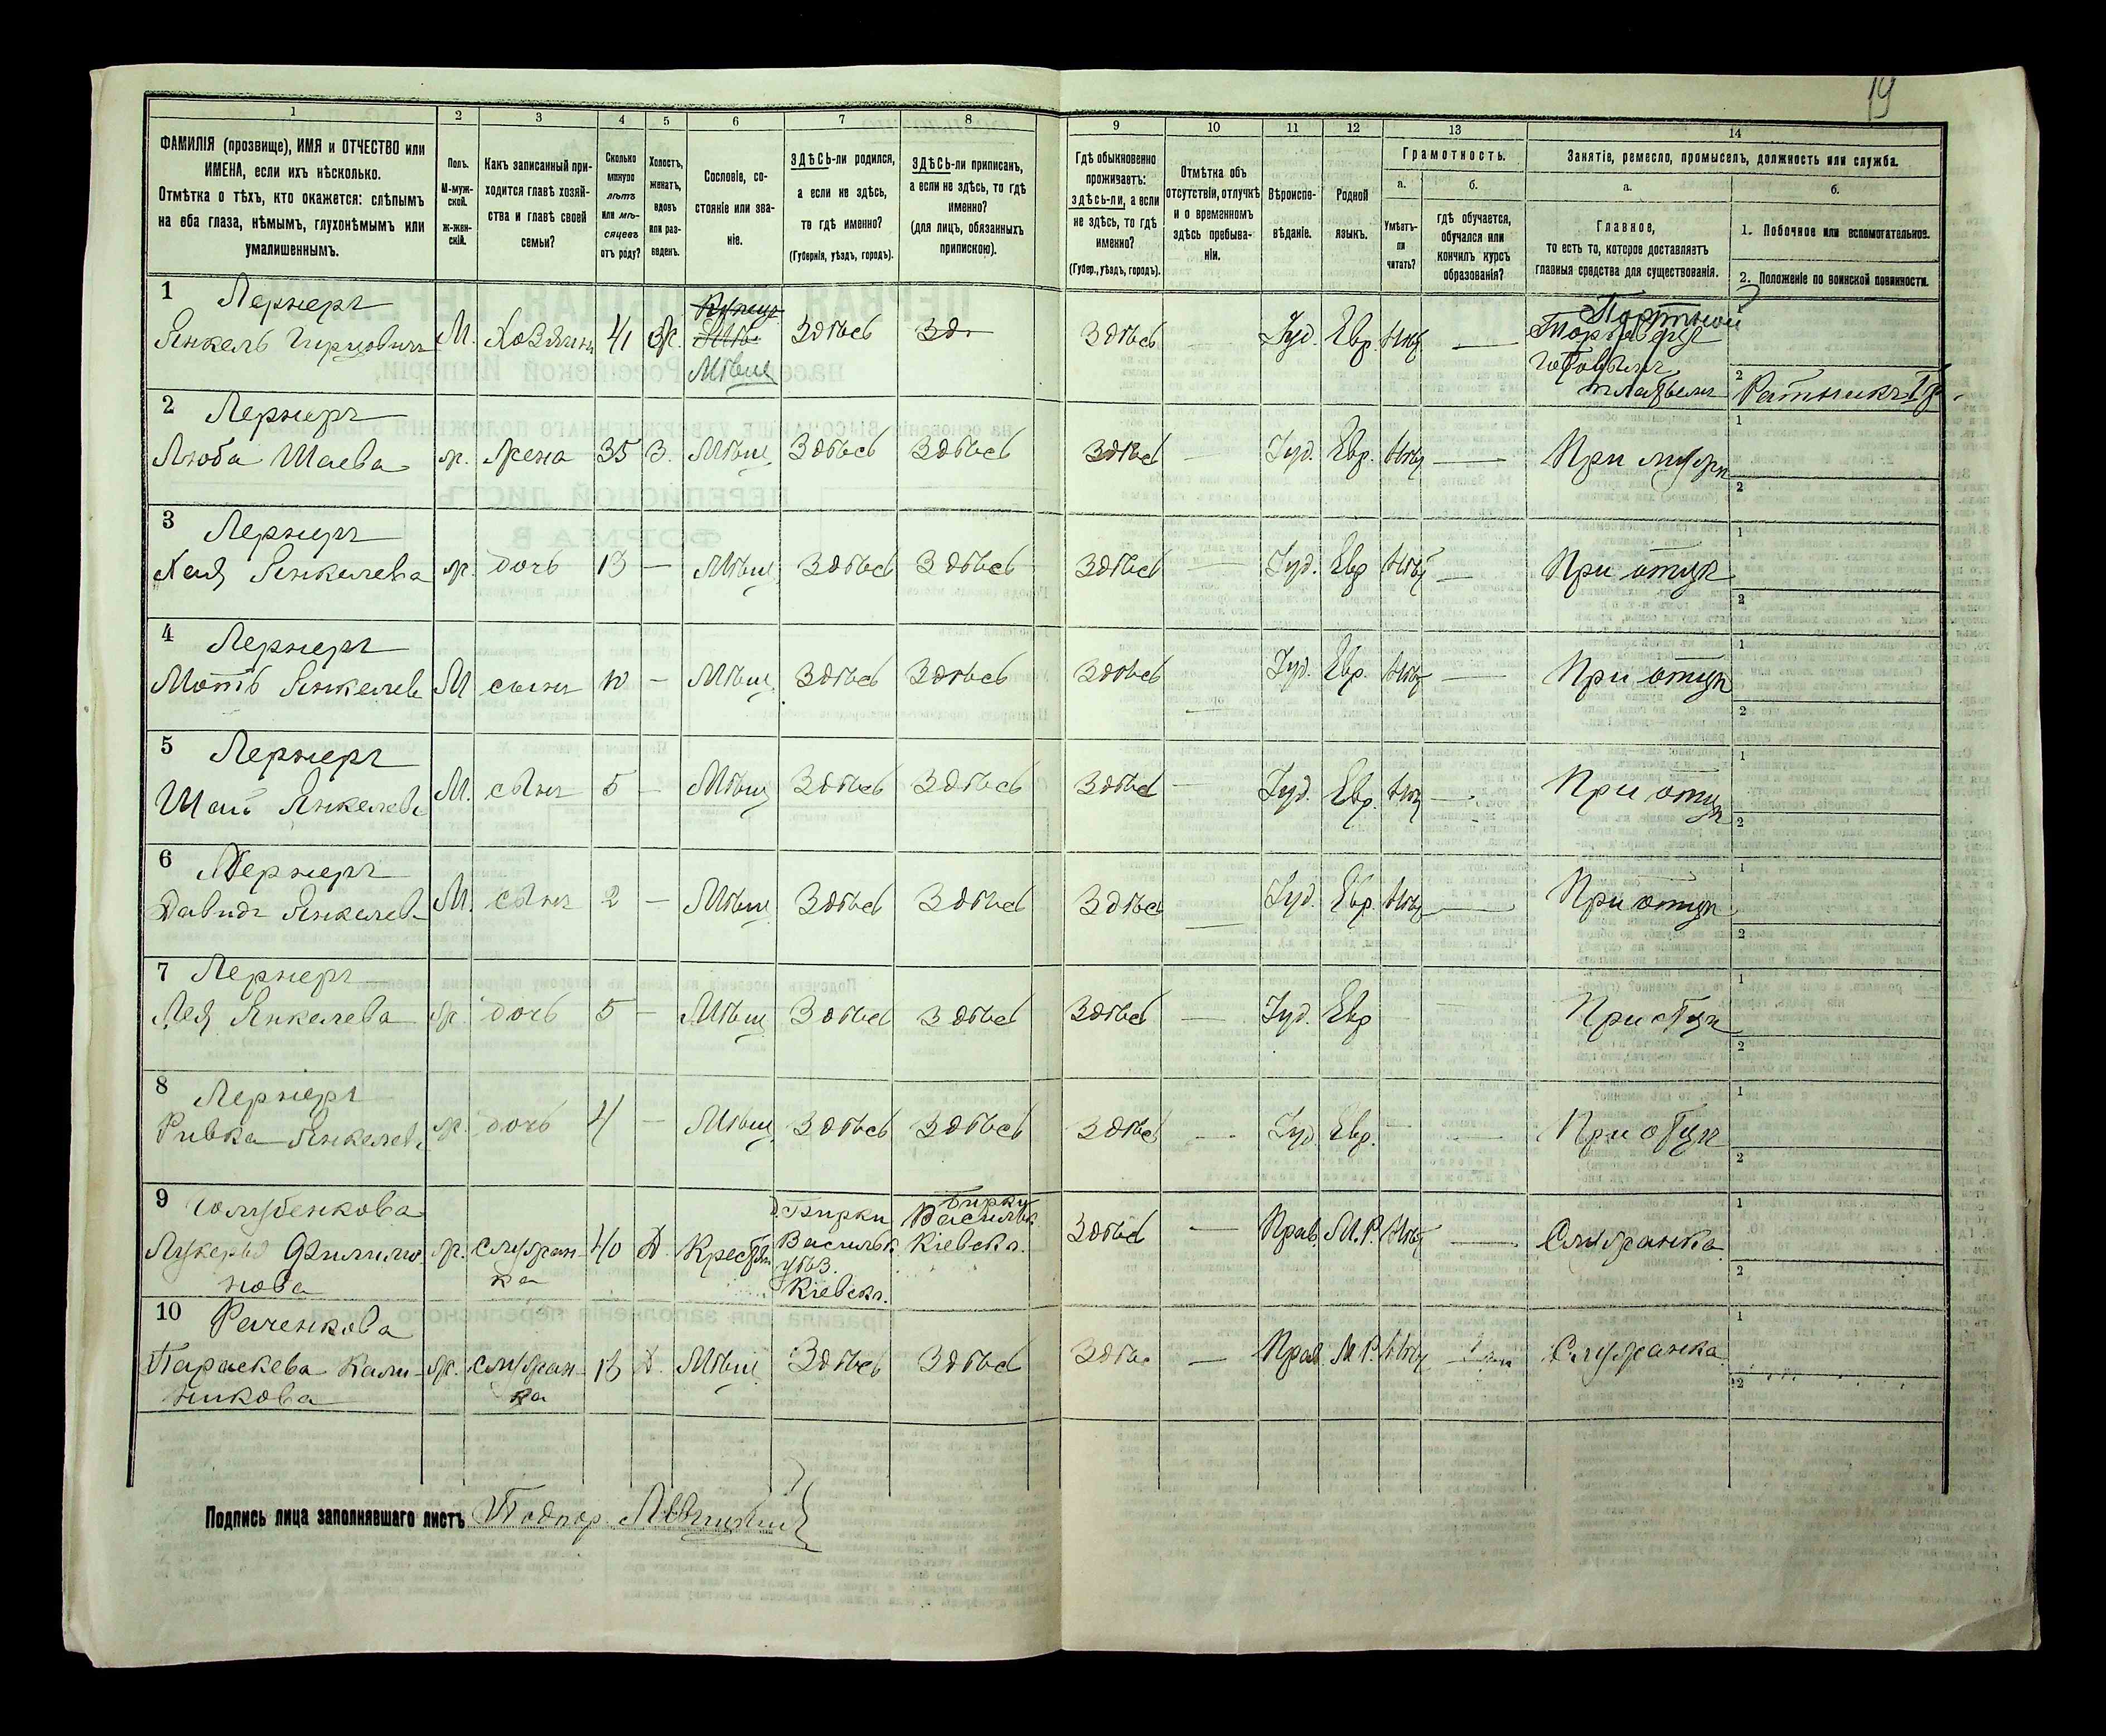 19
1 2 3 4 5 6 7 8 9 10 11 12 13 14
ФАМИЛІЯ (прозвище), ИМЯ и ОТЧЕСТВО или
ИМЕНА, если ихъ нѣсколько.
Отмѣтка о тѣхъ, кто окажется: слѣпымъ
на оба глаза, нѣмымъ, глухонѣмымъ или
умалишеннымъ.
Полъ.
М-муж-
ской.
Ж-жен-
скій.
Какъ записанный при-
ходится главѣ хозяй-
ства и главѣ своей
семьи?
Сколько
минуло
лѣтъ
или мѣ-
сяцевъ
отъ роду?
Холостъ,
женатъ,
вдовъ
или раз-
веденъ.
Сословіе, со-
стояніе или зва-
ніе.
ЗДѢСЬ-ли родился,
а если не здѣсь,
то гдѣ именно?
(Губернія, уѣздъ, городъ).
ЗДѢСЬ-ли приписанъ,
а если не здѣсь, то гдѣ
именно?
(для лицъ, обязанныхъ
припискою).
Гдѣ обыкновенно
проживаетъ:
здѣсь-ли, а если
не здѣсь, то гдѣ
именно?
(Губер., уѣздъ, городъ).
Отмѣтка объ
отсутствіи, отлучкѣ
и о временномъ
здѣсь пребыва-
ніи.
Вѣроиспо-
вѣданіе.
Родной
языкъ.
Грамотность.
а.
Умѣетъ-
ли
читать?
б.
гдѣ обучается,
обучался или
кончилъ курсъ
образованія?
Занятіе, ремесло, промыселъ, должность или служба.
а.
Главное,
то есть то, которое доставляетъ
главныя средства для существованія.
б.
1. Побочное или вспомогательное.
2. Положеніе по воинской повинности.
1 Лернеръ
Янкель Гершовичъ М. Хозяинъ 41 Ж. Мѣщ Здѣсь Зд. Здѣсь — Іуд. Евр. Нѣтъ —
Портной
Торговля
готовымъ
платьемъ
2 Ратникъ
2 Лернеръ
Люба Шаева ж. жена 35 З. Мѣщ Здѣсь Здѣсь Здѣсь — Іуд. Евр. Нѣтъ — При мужѣ
1
2
3 Лернеръ
Хая Янкелева ж. дочь 13 — Мѣщ Здѣсь Здѣсь Здѣсь — Іуд. Евр Нѣтъ — При отцѣ
1
2
4 Лернеръ
Мотъ Янкелев М сынъ 10 — Мѣщ Здѣсь Здѣсь Здѣсь — Іуд. Евр. Нѣтъ — При отцѣ
1
2
5 Лернеръ
Шая Янкелевъ М. сынъ 5 — Мѣщ Здѣсь Здѣсь Здѣсь — Іуд. Евр. Нѣтъ — При отцѣ
1
2
6 Лернеръ
Давидъ Янкелев М. сынъ 2 — Мѣщ Здѣсь Здѣсь Здѣсь — Іуд. Евр. Нѣтъ — При отцѣ
1
2
7 Лернеръ
Лея Янкелева ж. дочь 5 — Мѣщ Здѣсь Здѣсь Здѣсь — Іуд. Евр — При отцѣ
1
2
8 Лернеръ
Ривка Янкелев ж. дочь 4 — Мѣщ Здѣсь Здѣсь Здѣсь — Іуд Евр. — При отцѣ
1
2
9 Голубенкова
Лукерья Филимо-
нова
ж. служан-
ка
40 Д. Крестьян
д. Бирки
Васильк.
уѣз.
Кіевск.
Бирки
Васильк.
Кіевск.
Здѣсь — Прав. М.Р. Нѣтъ — Служанка
1
2
10 Раченкова
Параскева Кали-
никова
ж. служан-
ка
13 Д. Мѣщ Здѣсь Здѣсь Здѣсь — Прав. М.Р. Нѣтъ — Служанка
1
2
Подпись лица заполнявшаго листъ Подпор.